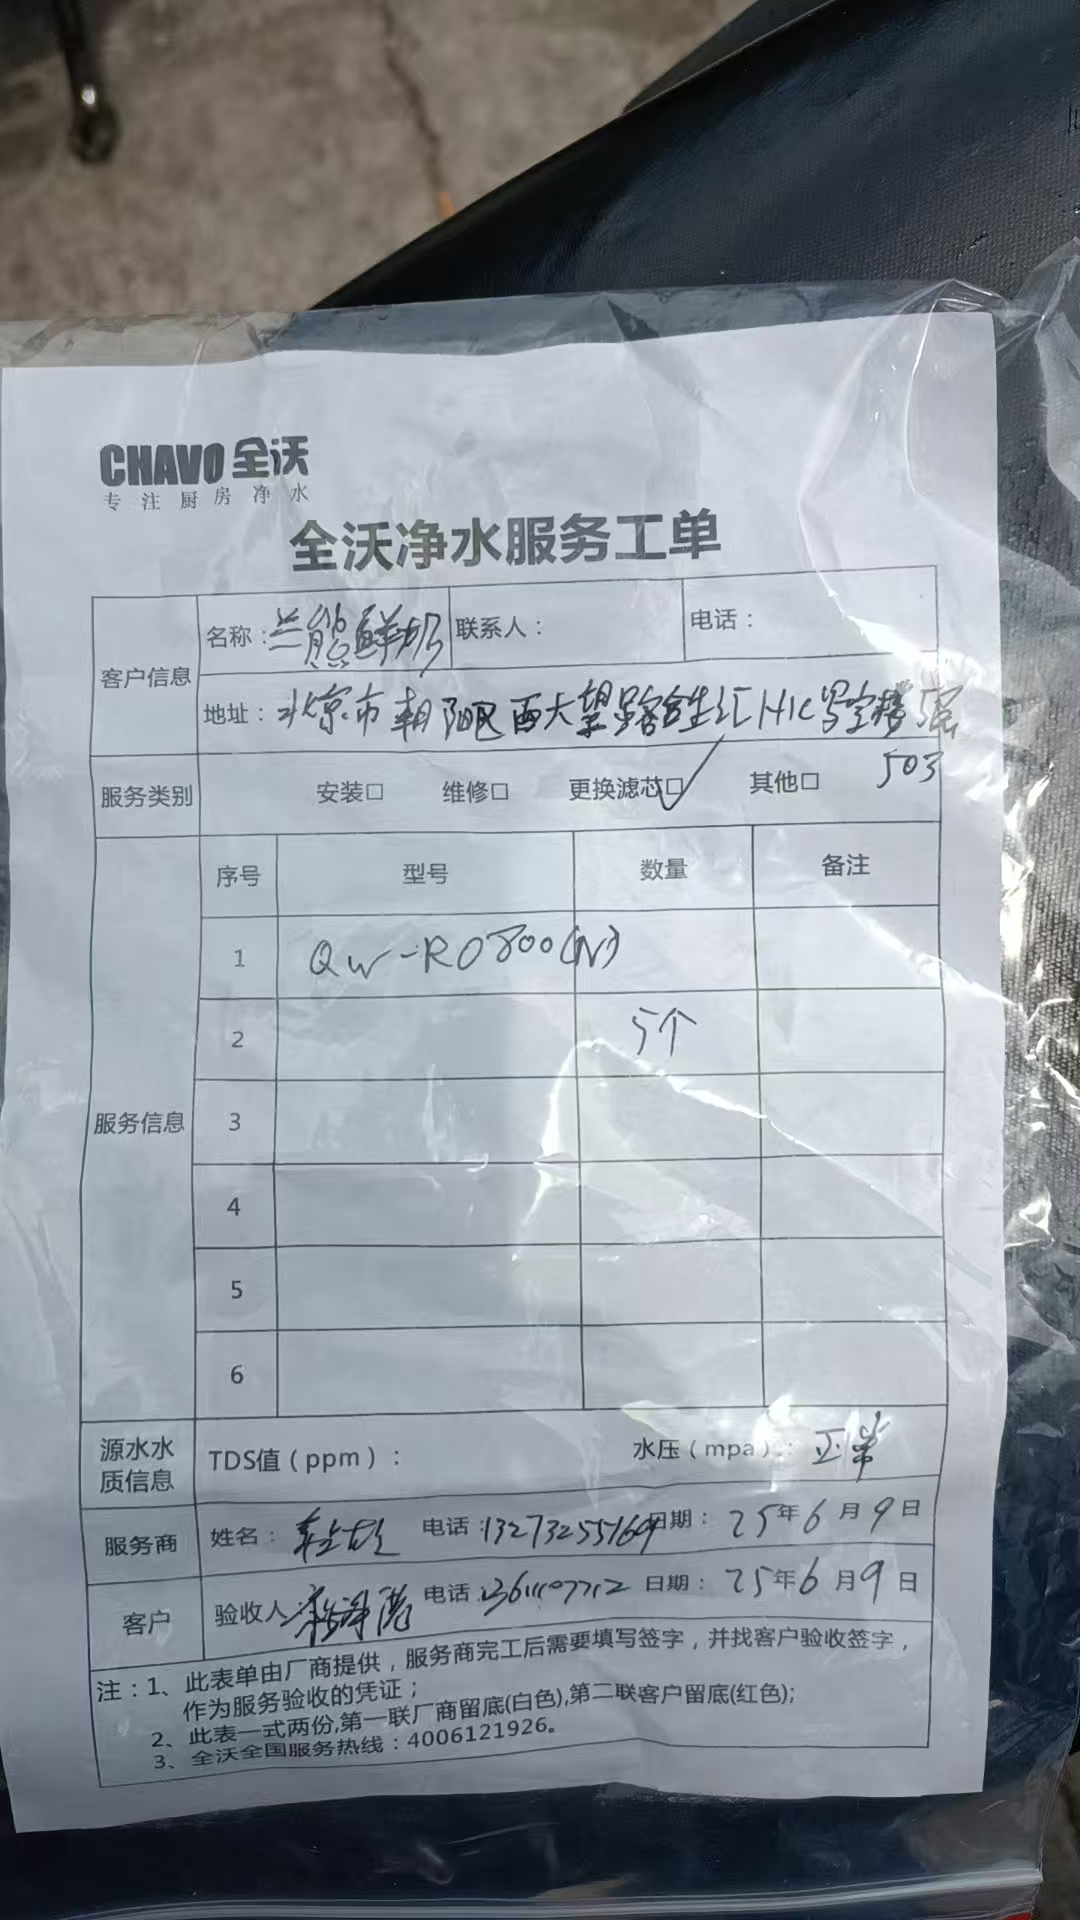 CHAVO 全沃
专注厨房净水
全沃净水服务工单
客户信息
名称：兰熊鲜奶 联系人： 电话：
地址：北京市朝阳区西大望路合生汇H1C写字楼5层
503
服务类别 安装□ 维修□ 更换滤芯☑ 其他□
服务信息
序号 型号 数量 备注
1 QW-RO800(N)
2 5个
3
4
5
6
源水水质信息 TDS值（ppm）： 水压（mpa）：正常
服务商 姓名： 电话：13273255169 日期：25年6月9日
客户 验收人 电话： 日期：25年6月9日
注：1、此表单由厂商提供，服务商完工后需要填写签字，并找客户验收签字，
作为服务验收的凭证；
2、此表一式两份,第一联厂商留底(白色),第二联客户留底(红色);
3、全沃全国服务热线：4006121926。